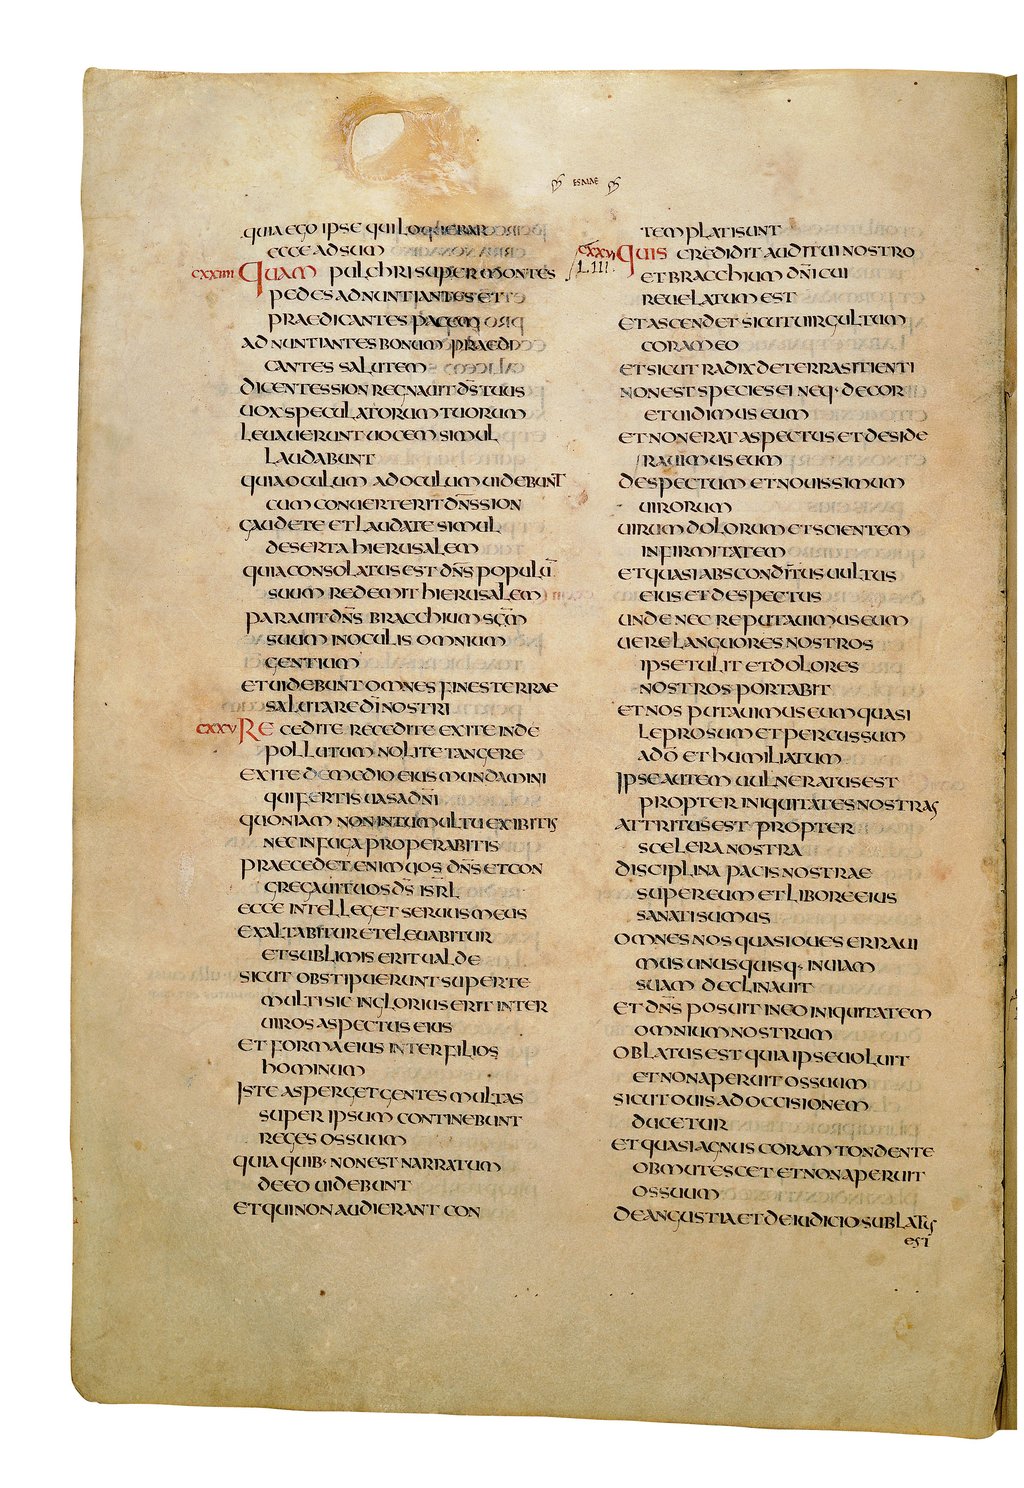 ESAIAE
QUIA EGO IPSE QUI LOQUEBAR
ECCE ADSUM
CXXIIII QUAM PULCHRI SUPER MONTES
PEDES ADNUNTIANTES ET
PRAEDICANTES PACEM
ADNUNTIANTES BONUM PRAEDI
CANTES SALUTEM
DICENTES SION REGNAUIT D̅S̅ TUUS
UOX SPECULATORUM TUORUM
LEUAUERUNT UOCEM SIMUL
LAUDABUNT
QUIA OCULUM AD OCULUM UIDEBUNT
CUM CONUERTERIT D̅N̅S̅ SION
GAUDETE ET LAUDATE SIMUL
DESERTA HIERUSALEM
QUIA CONSOLATUS EST D̅N̅S̅ POPULU̅
SUUM REDEMIT HIERUSALEM
PARAUIT D̅N̅S̅ BRACCHIUM S̅C̅M̅
SUUM IN OCULIS OMNIUM
GENTIUM
ET UIDEBUNT OMNES FINES TERRAE
SALUTARE D̅I̅ NOSTRI
CXXV RECEDITE RECEDITE EXITE INDE
POLLUTUM NOLITE TANGERE
EXITE DE MEDIO EIUS MUNDAMINI
QUI FERTIS UASA D̅N̅I̅
QUONIAM NON IN TUMULTU EXIBITIS
NEC IN FUGA PROPERABITIS
PRAECEDET ENIM UOS D̅N̅S̅ ET CON
GREGAUIT UOS D̅S̅ ISR̅L
ECCE INTELLEGET SERUUS MEUS
EXALTABITUR ET ELEUABITUR
ET SUBLIMIS ERIT UALDE
SICUT OBSTIPUERUNT SUPER TE
MULTI SIC INGLORIUS ERIT INTER
UIROS ASPECTUS EIUS
ET FORMA EIUS INTER FILIOS
HOMINUM
ISTE ASPERGET GENTES MULTAS
SUPER IPSUM CONTINEBUNT
REGES OS SUUM
QUIA QUIB· NON EST NARRATUM
DE EO UIDEBUNT
ET QUI NON AUDIERANT CON
TEMPLATI SUNT
CXXVI QUIS CREDIDIT AUDITUI NOSTRO
LIII· ET BRACCHIUM D̅N̅I̅ CUI
REUELATUM EST
ET ASCENDET SICUT UIRGULTUM
CORAM EO
ET SICUT RADIX DE TERRA SITIENTI
NON EST SPECIES EI NEQ· DECOR
ET UIDIMUS EUM
ET NON ERAT ASPECTUS ET DESIDE
RAUIMUS EUM
DESPECTUM ET NOUISSIMUM
UIRORUM
UIRUM DOLORUM ET SCIENTEM
INFIRMITATEM
ET QUASI ABSCONDITUS UULTUS
EIUS ET DESPECTUS
UNDE NEC REPUTAUIMUS EUM
UERE LANGUORES NOSTROS
IPSE TULIT ET DOLORES
NOSTROS PORTABIT
ET NOS PUTAUIMUS EUM QUASI
LEPROSUM ET PERCUSSUM
A D̅O̅ ET HUMILIATUM
IPSE AUTEM UULNERATUS EST
PROPTER INIQUITATES NOSTRAS
ATTRITUS EST PROPTER
SCELERA NOSTRA
DISCIPLINA PACIS NOSTRAE
SUPER EUM ET LIBORE EIUS
SANATI SUMUS
OMNES NOS QUASI OUES ERRAUI
MUS UNUSQUISQ· IN UIAM
SUAM DECLINAUIT
ET D̅N̅S̅ POSUIT IN EO INIQUITATEM
OMNIUM NOSTRUM
OBLATUS EST QUIA IPSE UOLUIT
ET NON APERUIT OS SUUM
SICUT OUIS AD OCCISIONEM
DUCETUR
ET QUASI AGNUS CORAM TONDENTE
OBMUTESCET ET NON APERUIT
OS SUUM
DE ANGUSTIA ET DE IUDICIO SUBLATUS
EST